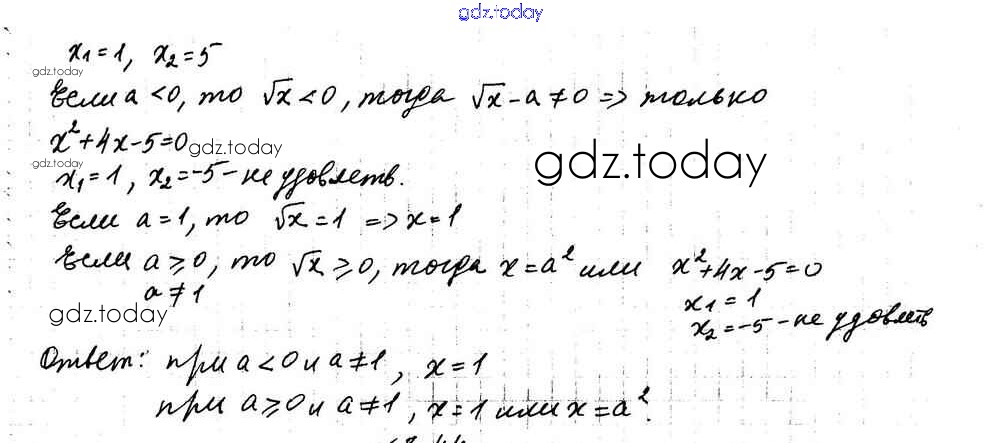 gdz.today
x₁=1, x₂=5
gdz.today
Если a<0, то √x<0, тогда √x-a≠0 => только
x²+4x-5=0 gdz.today
gdz.today
gdz.today
x₁=1, x₂=-5-не удовлетв.
Если a=1, то √x=1 => x=1
Если a≥0, то √x≥0, тогда x=a² или x²+4x-5=0
a≠1
x₁=1
gdz.today
x₂=-5-не удовлетв
Ответ: при a<0 и a≠1, x=1
при a≥0 и a≠1, x=1 или x=a².